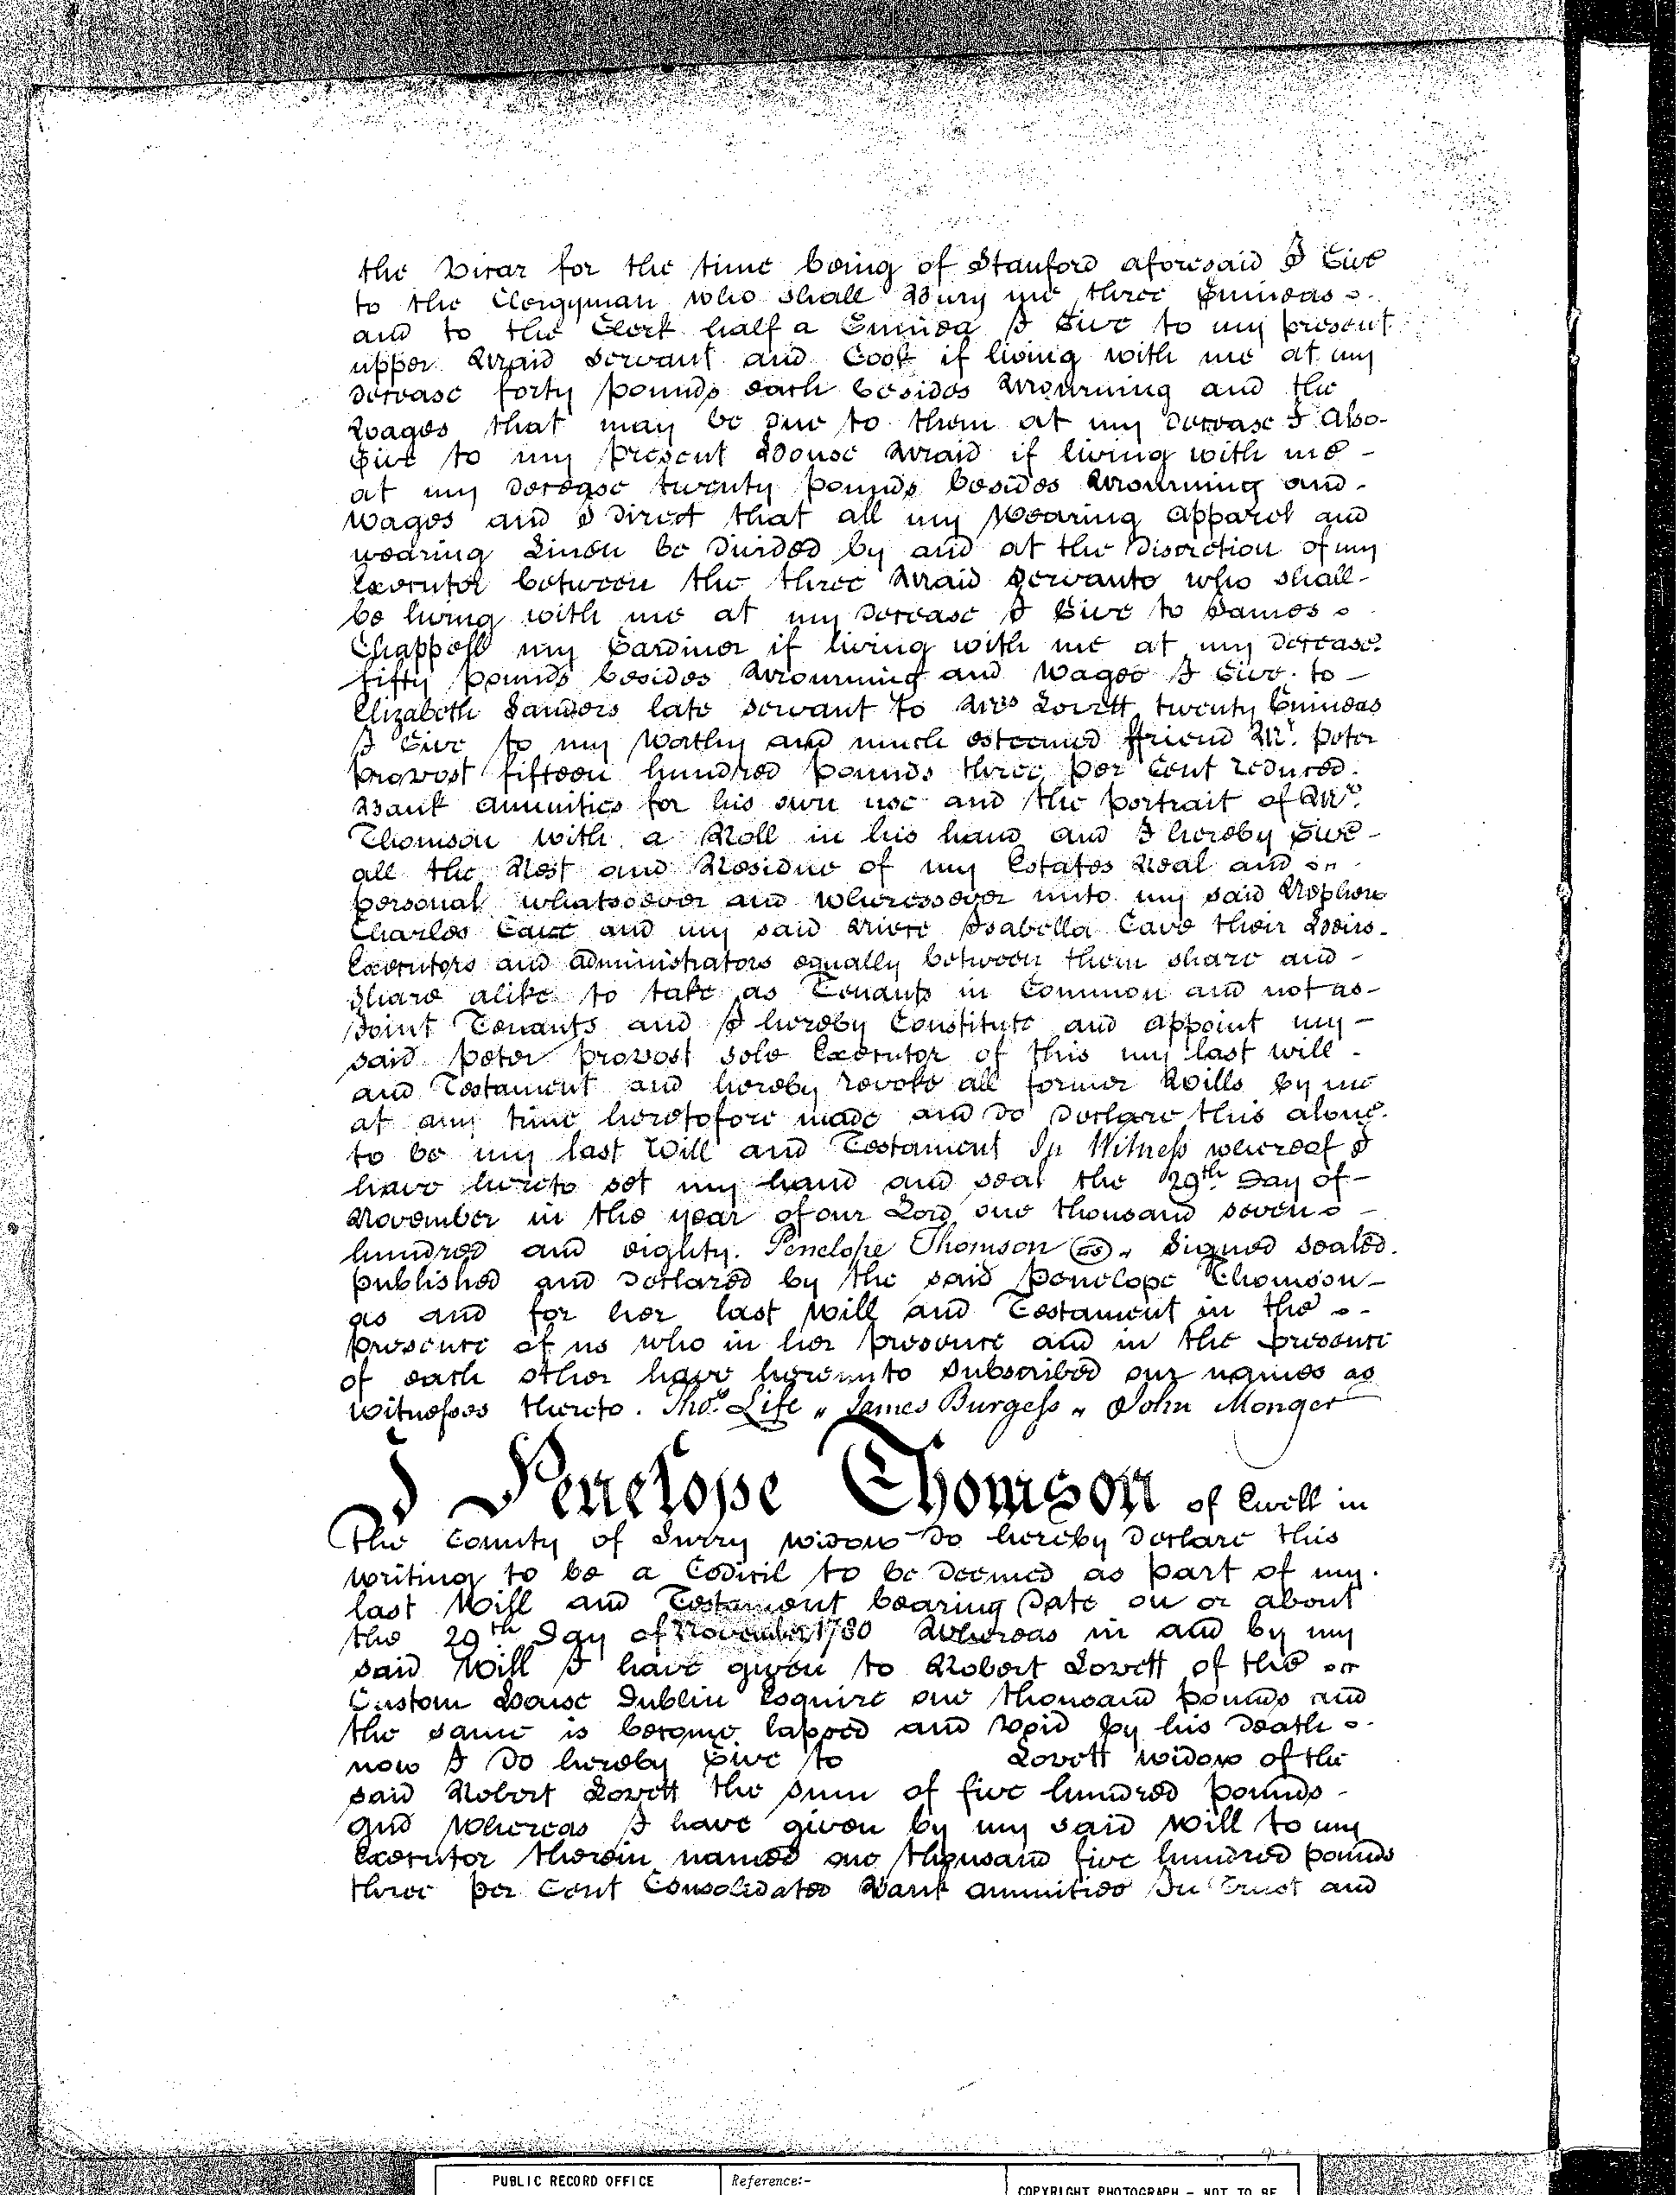 the Vicar for the time being of Stanford aforesaid I Give
to the Clergyman who shall Bury me three Guineas
and to the Clerk half a Guinea I Give to my present
upper Maid Servant and Cook if living with me at my
decease forty pounds each besides Mourning and the
Wages that may be due to them at my decease I Also
Give to my present House Maid if living with me -
at my decease twenty pounds besides Mourning and -
Wages and I direct that all my Wearing Apparel and
wearing Linen be divided by and at the Discretion of my
Executor between the three Maid Servants who shall -
be living with me at my decease I Give to James
Chappell my Gardiner if living with me at my decease
fifty pounds besides Mourning and Wages I Give to -
Elizabeth Sanders late servant to Mrs Lovett twenty Guineas
I Give to my Worthy and much esteemed ffriend Mr. Peter
Provost fifteen hundred pounds three per Cent reduced
Bank annuities for his own use and the portrait of Mr.
Thomson with a Roll in his hand and I hereby Give -
all the Rest and Residue of my Estates Real and
personal whatsoever and wheresoever unto my said Nephew
Charles Cave and my said Niece Isabella Cave their Heirs -
Executors and Administrators equally between them share and -
share alike to take as Tenants in Common and not as -
Joint Tenants and I hereby Constitute and appoint my -
said Peter Provost sole Executor of this my last will -
and Testament and hereby revoke all former Wills by me
at any time heretofore made and do declare this alone
to be my last Will and Testament In Witness whereof I
have hereto set my hand and seal the 29th Day of -
November in the year of our Lord one thousand seven -
hundred and eighty. Penelope Thomson (LS) Signed sealed
published and declared by the said Penelope Thomson -
as and for her last Will and Testament in the -
presence of us who in her presence and in the presence
of each other have hereunto subscribed our names as
witnesses thereto. Thos. Life " James Burgess " John Monger
I Penelope Thomson of Ewell in
the County of Surry widow do hereby declare this
writing to be a Codicil to be deemed as part of my
last Will and Testament bearing Date on or about
the 29th Day of November 1780 Whereas in and by my
said Will I have given to Robert Lovett of the
Custom House Dublin Esquire one thousand pounds and
the same is become lapsed and void by his death
now I do hereby Give to Lovett widow of the
said Robert Lovett the sum of five hundred pounds -
and Whereas I have given by my said Will to my
Executor therein named one thousand five hundred pounds
three per Cent Consolidated Bank Annuities In Trust and
PUBLIC RECORD OFFICE
Reference:-
COPYRIGHT PHOTOGRAPH - NOT TO BE